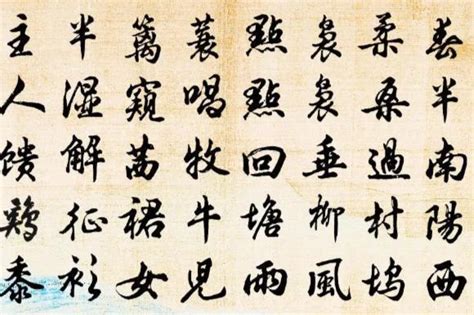 春半南陽西
柔桑過村塢
袅袅垂柳風
點點回塘雨
蓑唱牧牛兒
篱窺茜裙女
半湿解征衫
主人馈鷄黍